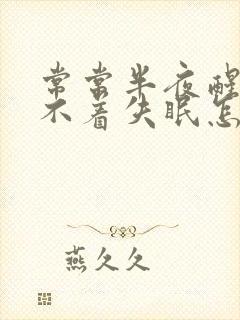 常常半夜醒
不着失眠怎
燕久久